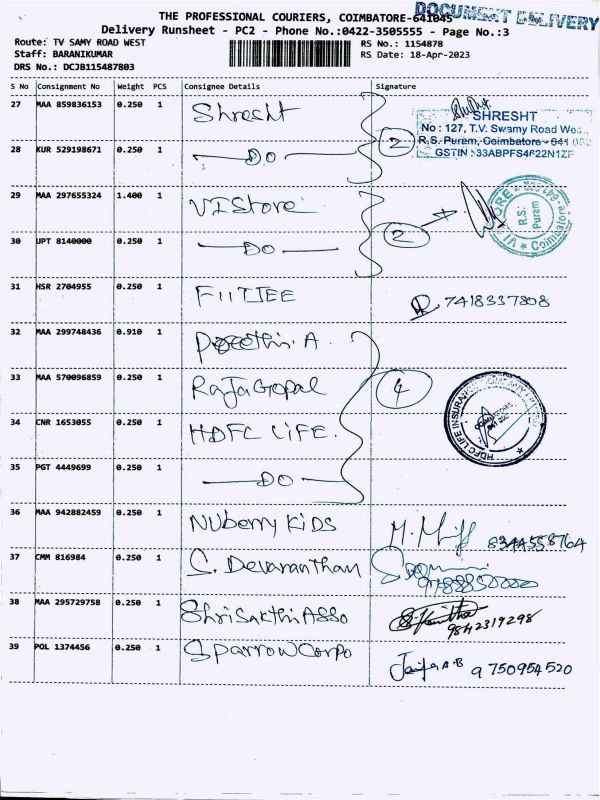 DOCUMENT DELIVERY
THE PROFESSIONAL COURIERS, COIMBATORE-641045
Delivery Runsheet - PC2 - Phone No.:0422-3505555 - Page No.:3
Route: TV SAMY ROAD WEST RS No.: 1154878
Staff: BARANIKUMAR RS Date: 18-Apr-2023
DRS No.: DCJB115487803
S No Consignment No Weight PCS Consignee Details Signature
27 MAA 859836153 0.250 1 Shresht
SHRESHT
No : 127, T.V. Swamy Road Wes
28 KUR 529198671 0.250 1 DO 2 R.S. Puram, Coimbatore - 641 002
GSTIN :33ABPFS4F22N1ZF
29 MAA 297655324 1.400 1 VI Store
R.S. Puram
30 UPT 8140000 0.250 1 DO 2
31 HSR 2704955 0.250 1 FIITJEE 7418337808
32 MAA 299748436 0.910 1 Preethi. A
33 MAA 570096859 0.250 1 RaJaGopal 4
34 CNR 1653055 0.250 1 HDFC LIFE.
HDFC LIFE INSURANCE COMPANY LIMITED
35 PGT 4449699 0.250 1 DO
36 MAA 942882459 0.250 1 NUberry KIDS 8344558764
37 CMM 816984 0.250 1 S. Devananthan
38 MAA 295729758 0.250 1 Shri Sakthi Asso 9842319298
39 POL 1374456 0.250 1 Sparrow Corpo 9750954520